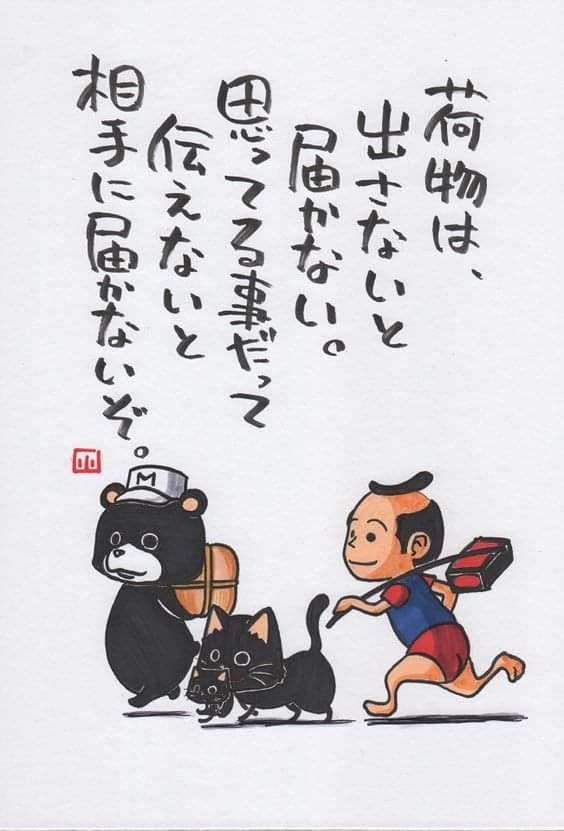 荷物は、
出さないと
届かない。
思ってる事だって
伝えないと
相手に届かないぞ。
山
M